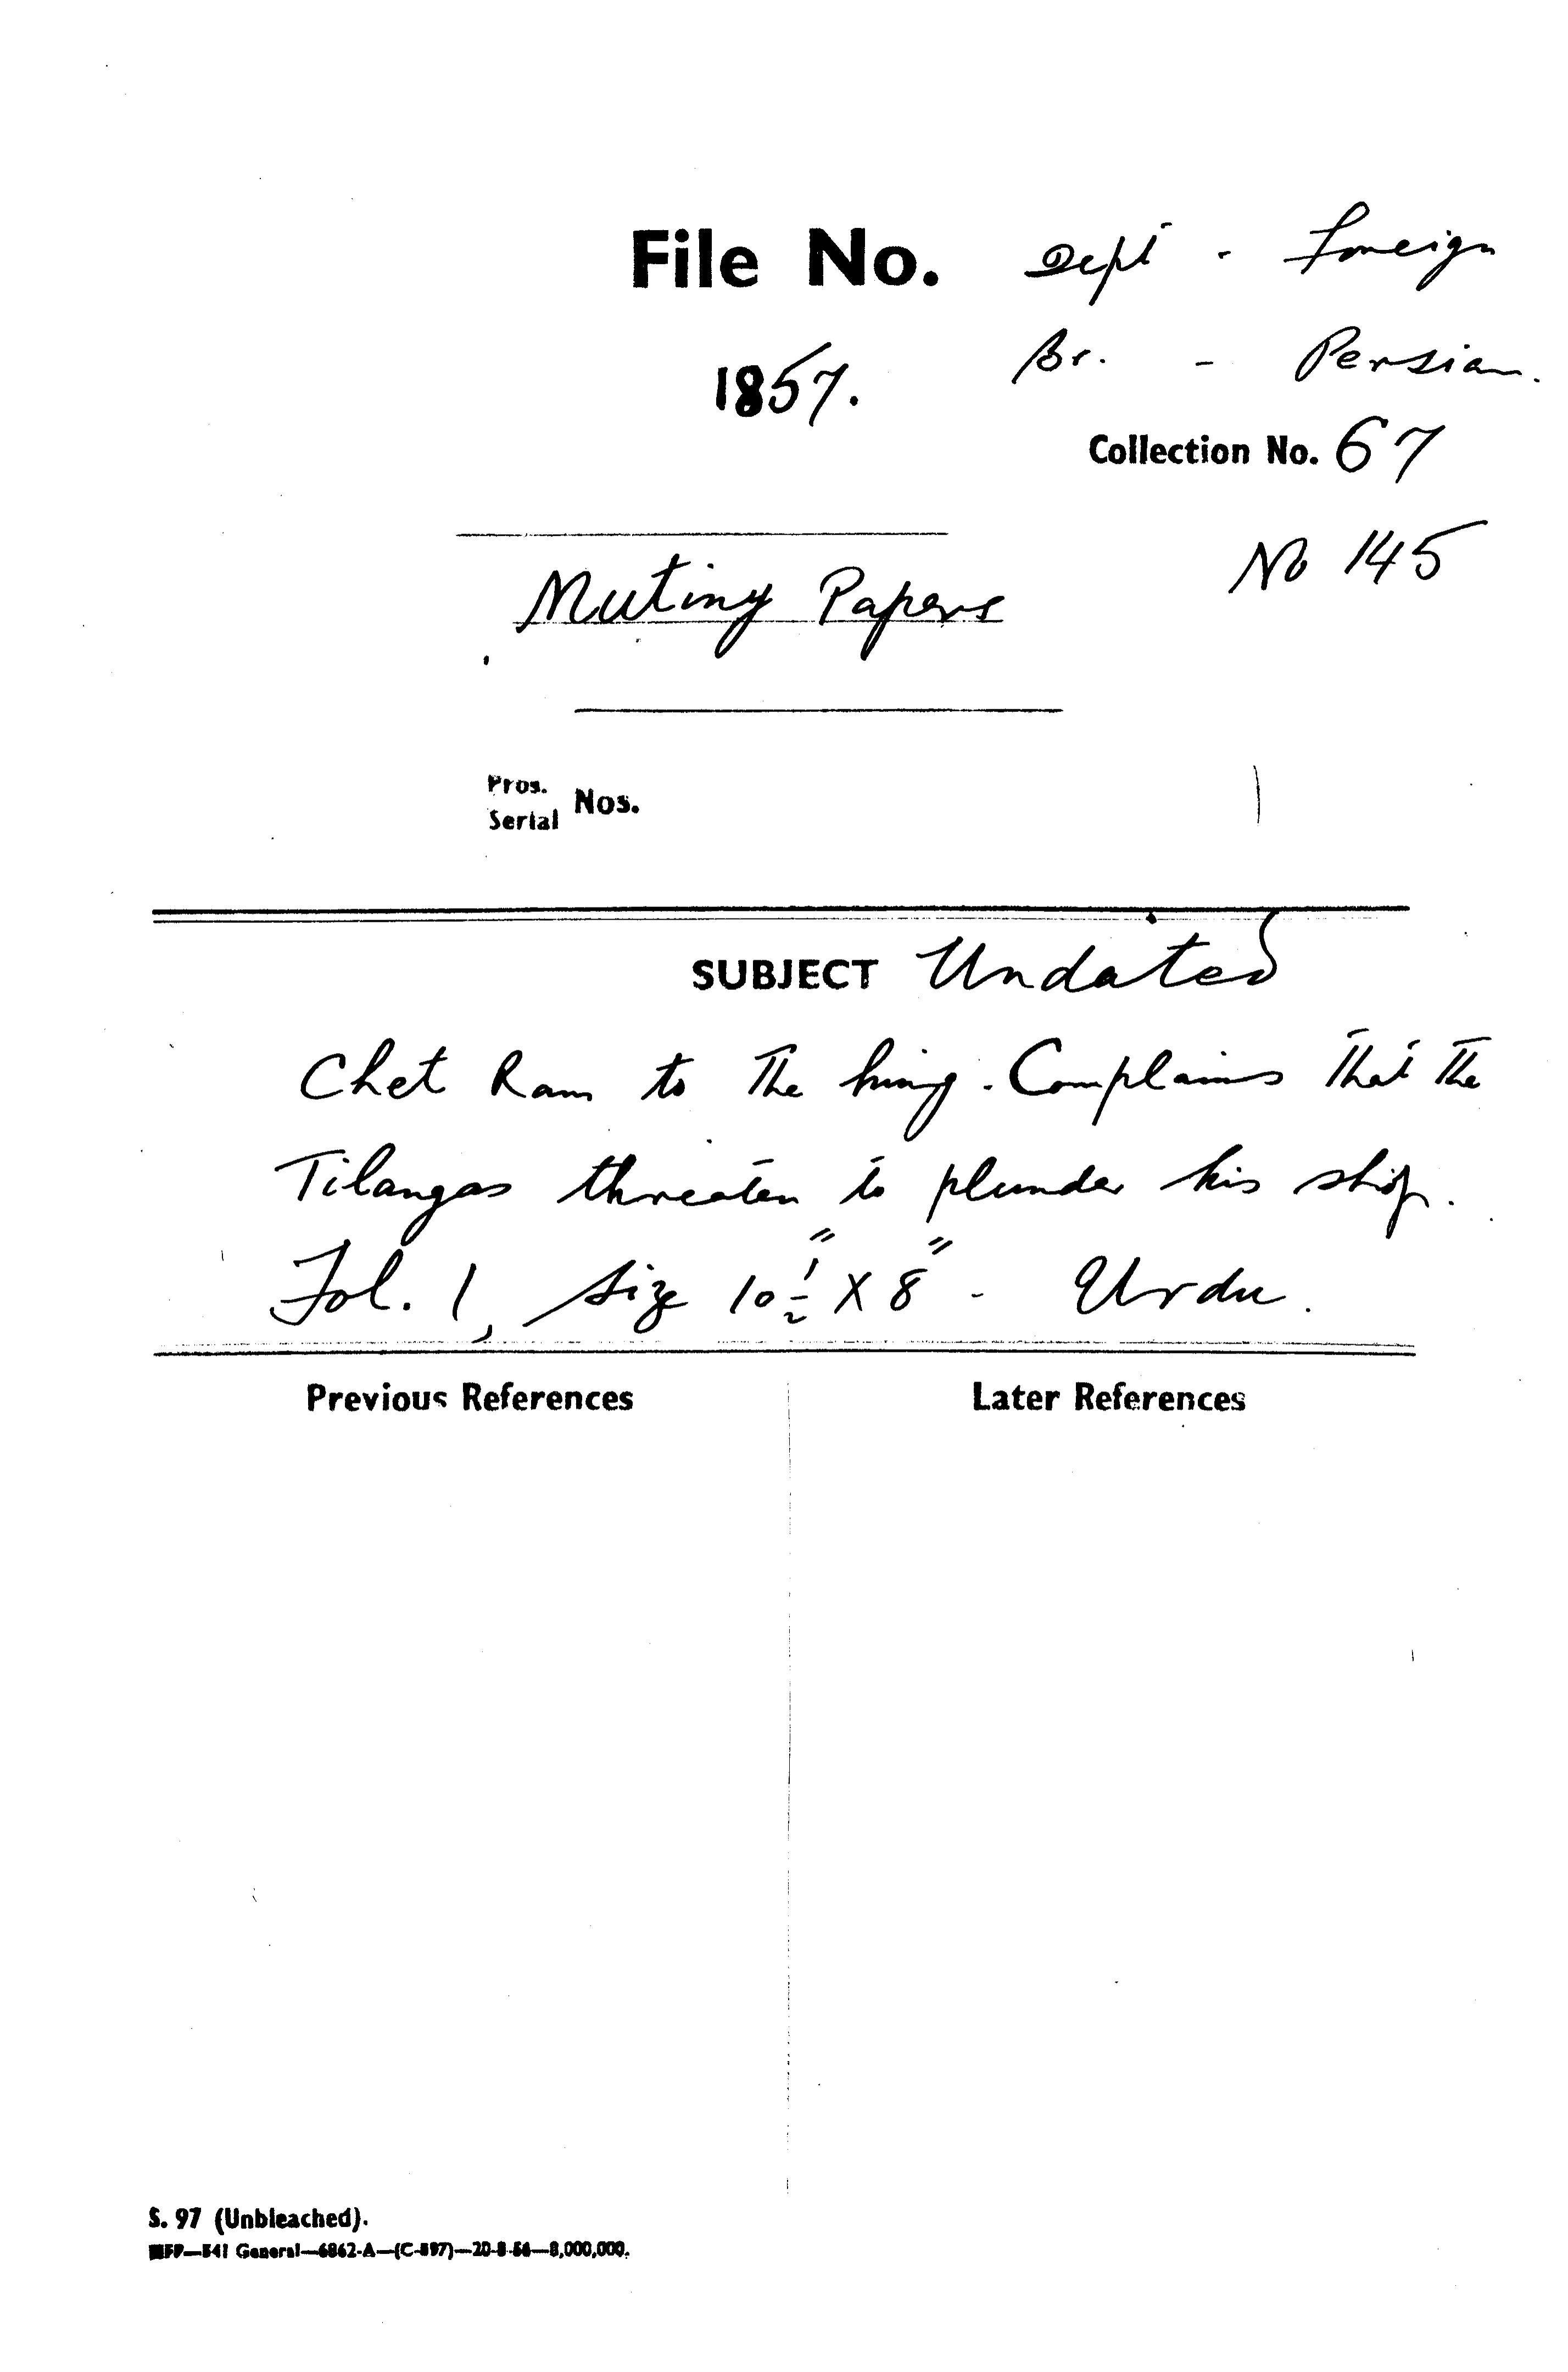 File No. Dept - Foreign
1857. Br. - Persian.
Collection No. 67
No 145
Mutiny Papers
Pros.
Serial Nos. 1
SUBJECT Undated
Chet Ram to the king. Complains that the
Tilangas threaten to plunder his shop.
Fol. 1, size 10 1/2" X 8" - Urdu.
Previous References Later References
S. 97 (Unbleached).
MFP—541 General—6862-A—(C-897)—20-8-56—8,000,000.